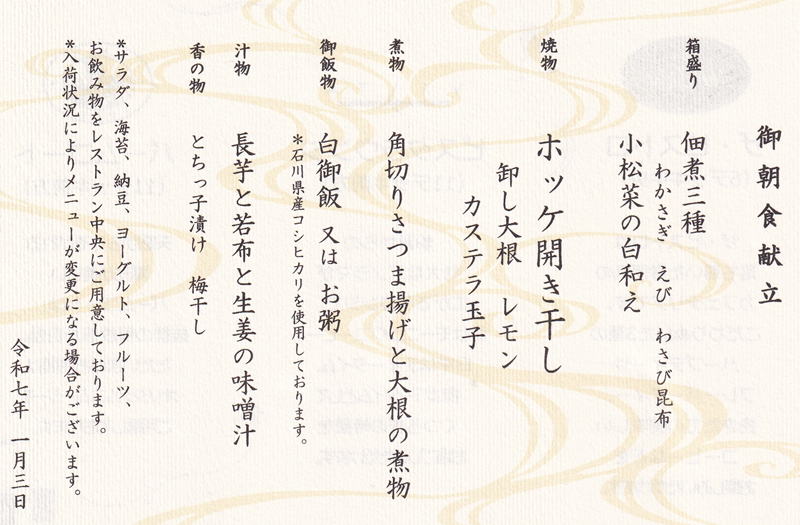 御朝食献立
箱盛り
佃煮三種
わかさぎ えび わさび昆布
小松菜の白和え
焼物
ホッケ開き干し
卸し大根 レモン
カステラ玉子
煮物
角切りさつま揚げと大根の煮物
御飯物
白御飯 又は お粥
*石川県産コシヒカリを使用しております。
汁物
長芋と若布と生姜の味噌汁
香の物
とちっ子漬け 梅干し
*サラダ、海苔、納豆、ヨーグルト、フルーツ、
お飲み物をレストラン中央にご用意しております。
*入荷状況によりメニューが変更になる場合がございます。
令和七年 一月三日